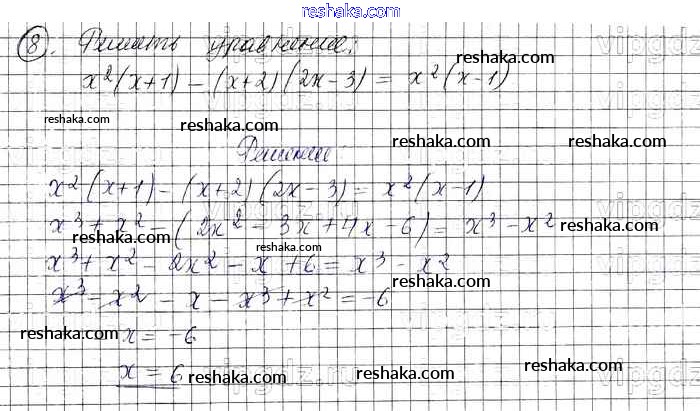 reshaka.com
8. Решить уравнение:
x²(x+1) - (x+2)(2x-3) = x²(x-1)
reshaka.com
reshaka.com
reshaka.com reshaka.com reshaka.com
Решение
x²(x+1) - (x+2)(2x-3) = x²(x-1)
reshaka.com reshaka.com
x³ + x² - (2x² - 3x + 4x - 6) = x³ - x²
reshaka.com reshaka.com
reshaka.com
x³ + x² - 2x² - x + 6 = x³ - x²
reshaka.com
x³ - x² - x - x³ + x² = -6
reshaka.com reshaka.com reshaka.com
x = -6
x = 6
reshaka.com reshaka.com reshaka.com
reshaka.com